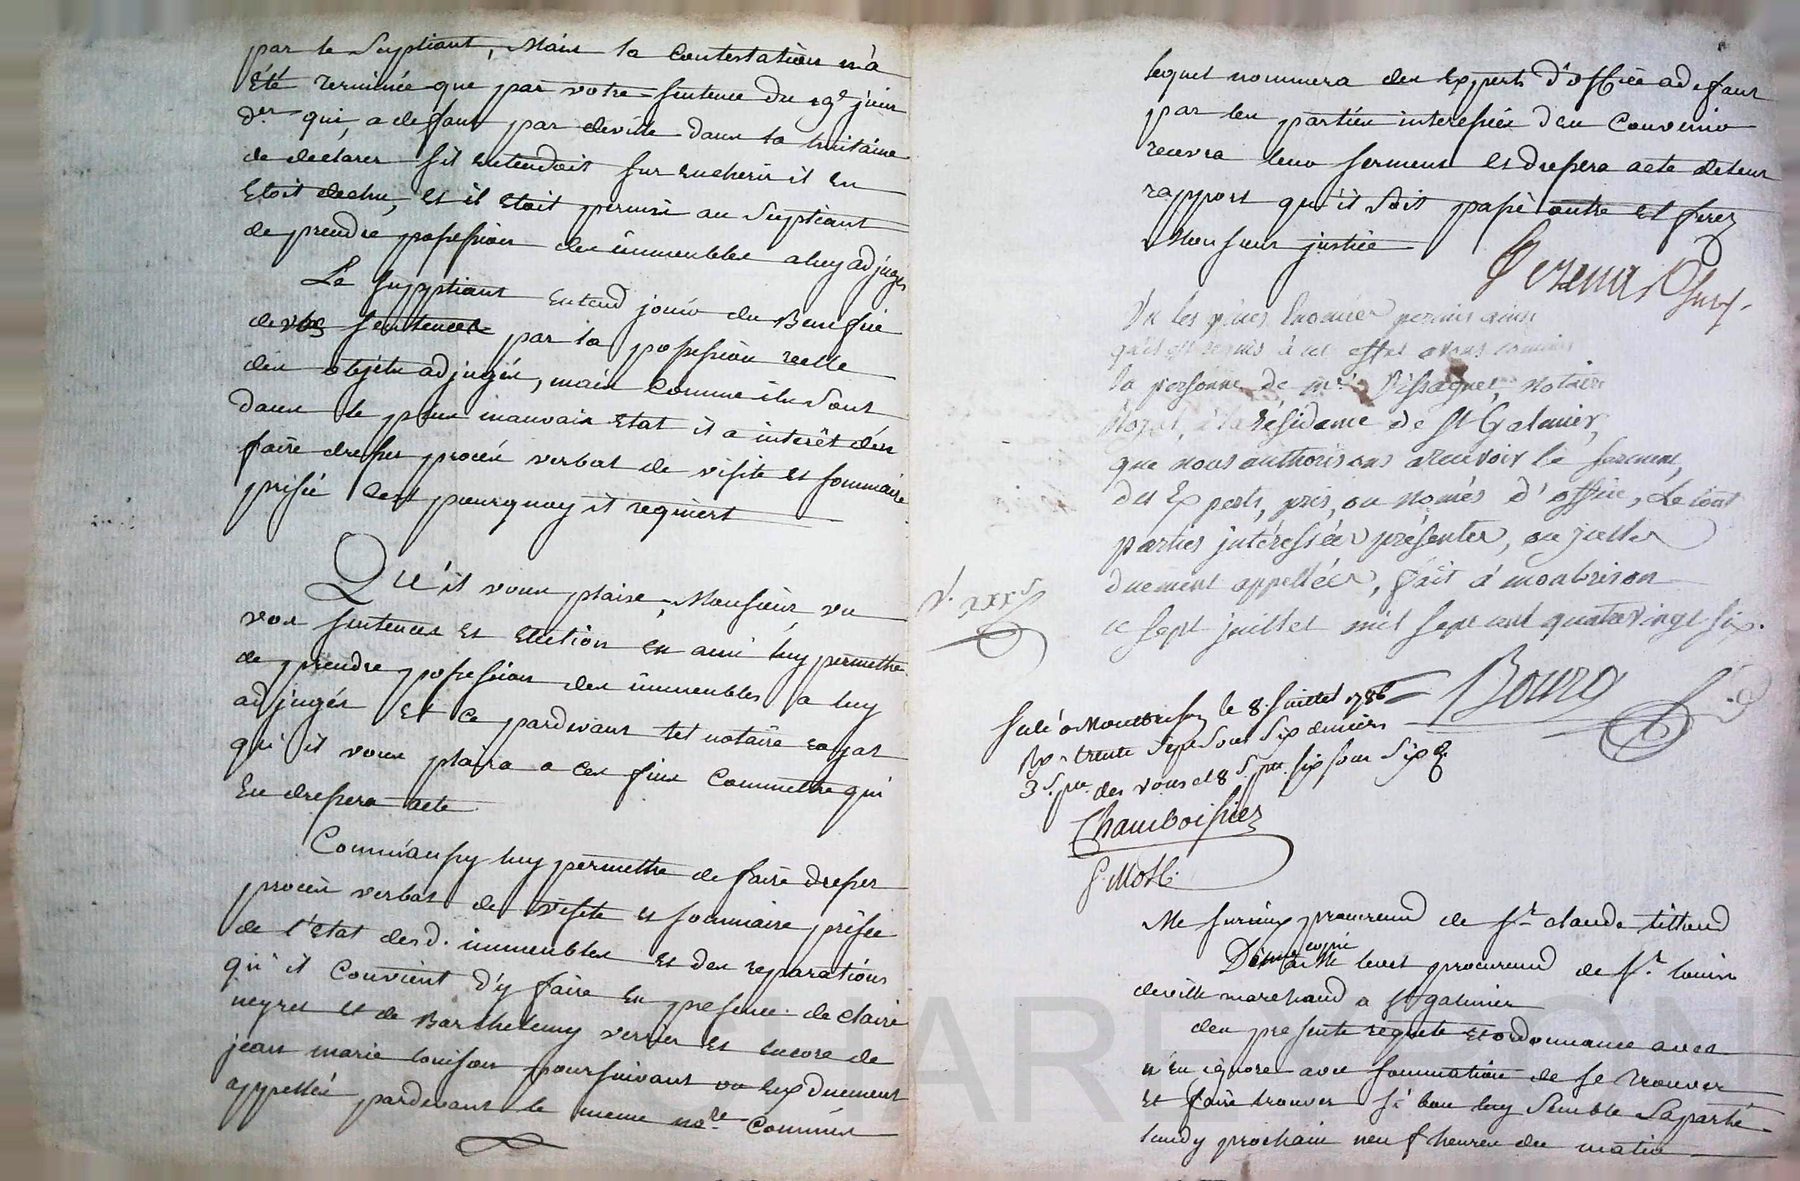 par le Supliant, Mais la Contestation n'a
Eté terminée que par votre sentence du 29e juin
der qui, a defaut par deville dans la huitaine
de declarer s'il entendoit sur encherir il en
Etoit dechu, Et il Etoit permis au Supliant
de prendre possession des immeubles a luy adjugés
Le suppliant Entend jouir du Benefice
de vos sentences par la possession reelle
des objets adjugés, mais Comme ils sont
dans le plus mauvais Etat il a interêt d'en
faire dresser procés verbal de visite et sommaire
prisée c'est pourquoy il requiert
Qu'il vous plaise, Monsieur, vu
vos sentences Et Election en ami luy permettre
de prendre possession des immeubles a luy
adjugés Et ce pardevant tel notaire royal
qu'il vous plaira a ces fins Commettre qui
En dressera acte
Comm'aussy luy permettre de faire dresser
procés verbal de visite et sommaire prisée
de l'Etat desd. immeubles et des reparations
qu'il Convient d'y faire En presence de claire
neyret et de Barthelemy verrier Et Encore de
jean marie louison poursuivant ou Eux duement
appellés pardevant le meme nore. Commis
lequel nommera des Experts d'office a defaut
par les parties interessées d'en Convenir
recevra leur serment et dressera acte de leur
rapport qu'il soit passé outre Et ferez
Monsieur justice
Vu les pièces Enoncées permis ainsi
qu'il est requis à cet effet avons commis
la personne de me notaire
Royal, à la résidence de St Galmier,
que nous authorisons a recevoir le serment,
des Experts, pris, ou només d'office, Le tout
parties intéressées présentes, ou icelles
duement appellées, fait à monbrison
ce sept juillet mil sept cent quatre vingt six.
Bourg
Sclé à Montbrison le 8. Juillet 1786
trente sept sous six deniers
3 s. pr. des vous et 8 s. pr. six sous six d.
Chamboissier
Me surieux procureur de sr. claude tillaud
copie
Donne a Me levet procureur de sr. louis
deville marchand a st galmier
des presente requete et ordonnance avec
n'en ignore avec sommation de se trouver
Et faire trouver si bon luy semble sa partie
lundy prochain neuf heures du matin
CHAREYRON